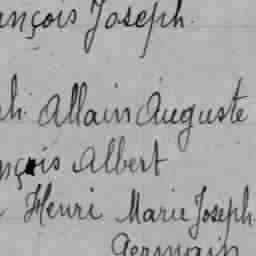 ançois Joseph.
ph. Allain Auguste
nçois Albert
Henri Marie Joseph
Germain